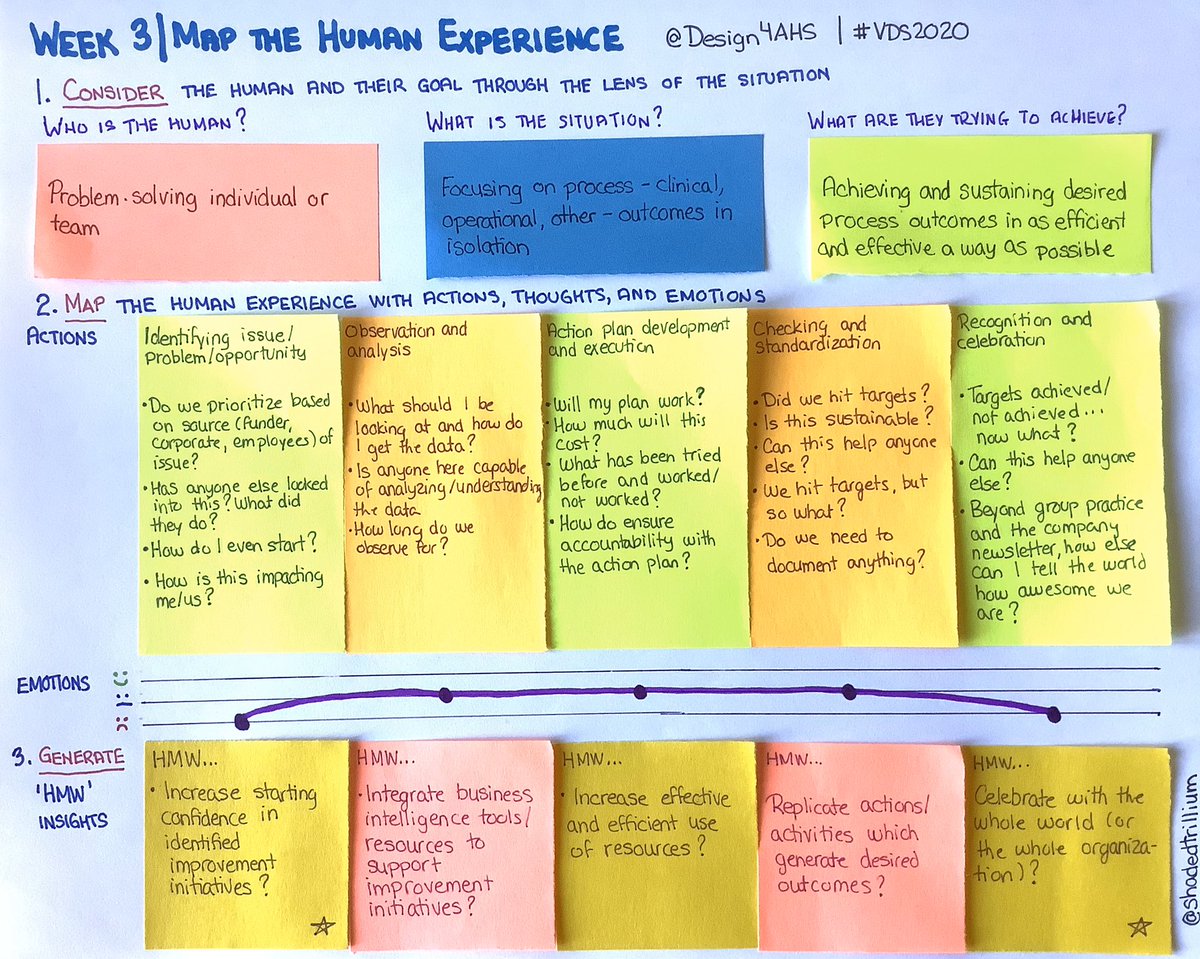 WEEK 3 | MAP THE HUMAN EXPERIENCE @Design4AHS | #VDS2020
1. CONSIDER THE HUMAN AND THEIR GOAL THROUGH THE LENS OF THE SITUATION
WHO IS THE HUMAN?
Problem-solving individual or
team
WHAT IS THE SITUATION?
Focusing on process - clinical,
operational, other - outcomes in
isolation
WHAT ARE THEY TRYING TO ACHIEVE?
Achieving and sustaining desired
process outcomes in as efficient
and effective a way as possible
2. MAP THE HUMAN EXPERIENCE WITH ACTIONS, THOUGHTS, AND EMOTIONS
ACTIONS
Identifying issue/
problem/opportunity
• Do we prioritize based
on source (funder,
corporate, employees) of
issue?
• Has anyone else looked
into this? What did
they do?
• How do I even start?
• How is this impacting
me/us?
Observation and
analysis
• What should I be
looking at and how do
I get the data?
• Is anyone here capable
of analyzing/understanding
the data
• How long do we
observe for?
Action plan development
and execution
• Will my plan work?
• How much will this
cost?
• What has been tried
before and worked/
not worked?
• How do ensure
accountability with
the action plan?
Checking and
standardization
• Did we hit targets?
• Is this sustainable?
• Can this help anyone
else?
• We hit targets, but
so what?
• Do we need to
document anything?
Recognition and
celebration
• Targets achieved/
not achieved...
now what?
• Can this help anyone
else?
• Beyond group practice
and the company
newsletter, how else
can I tell the world
how awesome we
are?
EMOTIONS
3. GENERATE
'HMW'
INSIGHTS
HMW...
• Increase starting
confidence in
identified
improvement
initiatives?
HMW...
• Integrate business
intelligence tools/
resources to
support
improvement
initiatives?
HMW...
• Increase effective
and efficient use
of resources?
HMW...
Replicate actions/
activities which
generate desired
outcomes?
HMW...
Celebrate with the
whole world (or
the whole organiza-
tion)?
@shadedtrillium